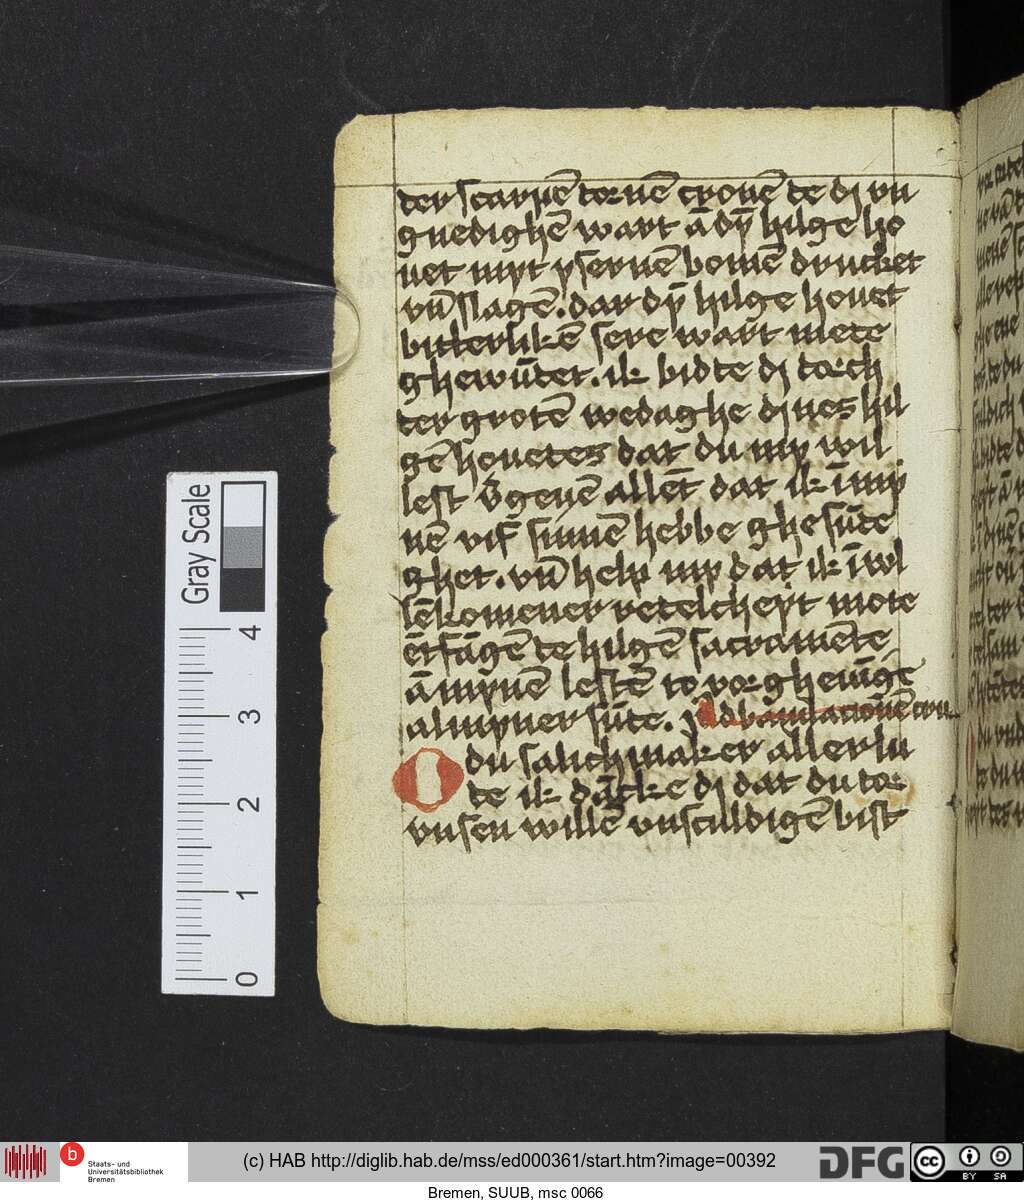 der scarpē dornē cronē de dj vn
gnedighē wart ā dȳ hilge ho
uet myt ysernē bomē drucket
vn̄ slagē. dar dȳ hilge houet
bitterlikē sere wart mete
ghewūdet. ik bidde dj dorch
der grotē wedaghe dines hil
gē houetes dat du my wil
lest v̄geuē allēt dat ik ī my
nē vif sinnē hebbe ghesūde
ghet. vn̄ help my dat ik ī vol
lēkomener
mote
ētfāgē de hilgē sacramēte
ā mynē lestē to vorgheuīge
al myner sūde.
O du salichmaker aller lu
de ik dācke dj dat du dor
vnsen willē vnsculdigē bist
Gray Scale
4
3
2
1
0
Staats- und
Universitätsbibliothek
Bremen
(c) HAB http://diglib.hab.de/mss/ed000361/start.htm?image=00392
DFG
cc BY SA
Bremen, SUUB, msc 0066